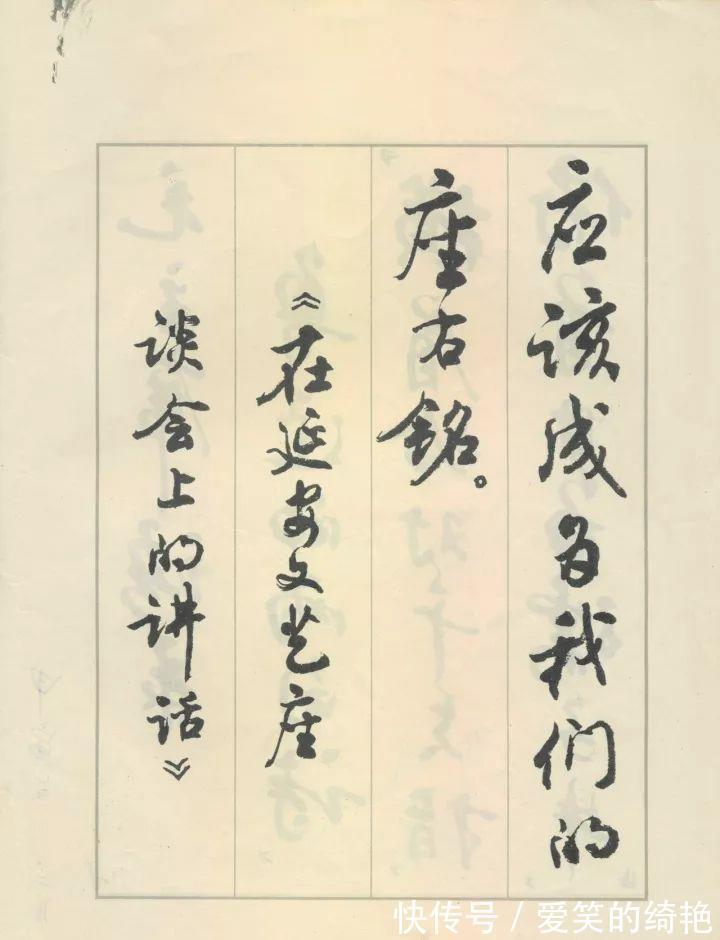 应该成为我们的
座右铭。
《在延安文艺座
谈会上的讲话》
快传号 / 爱笑的绮艳